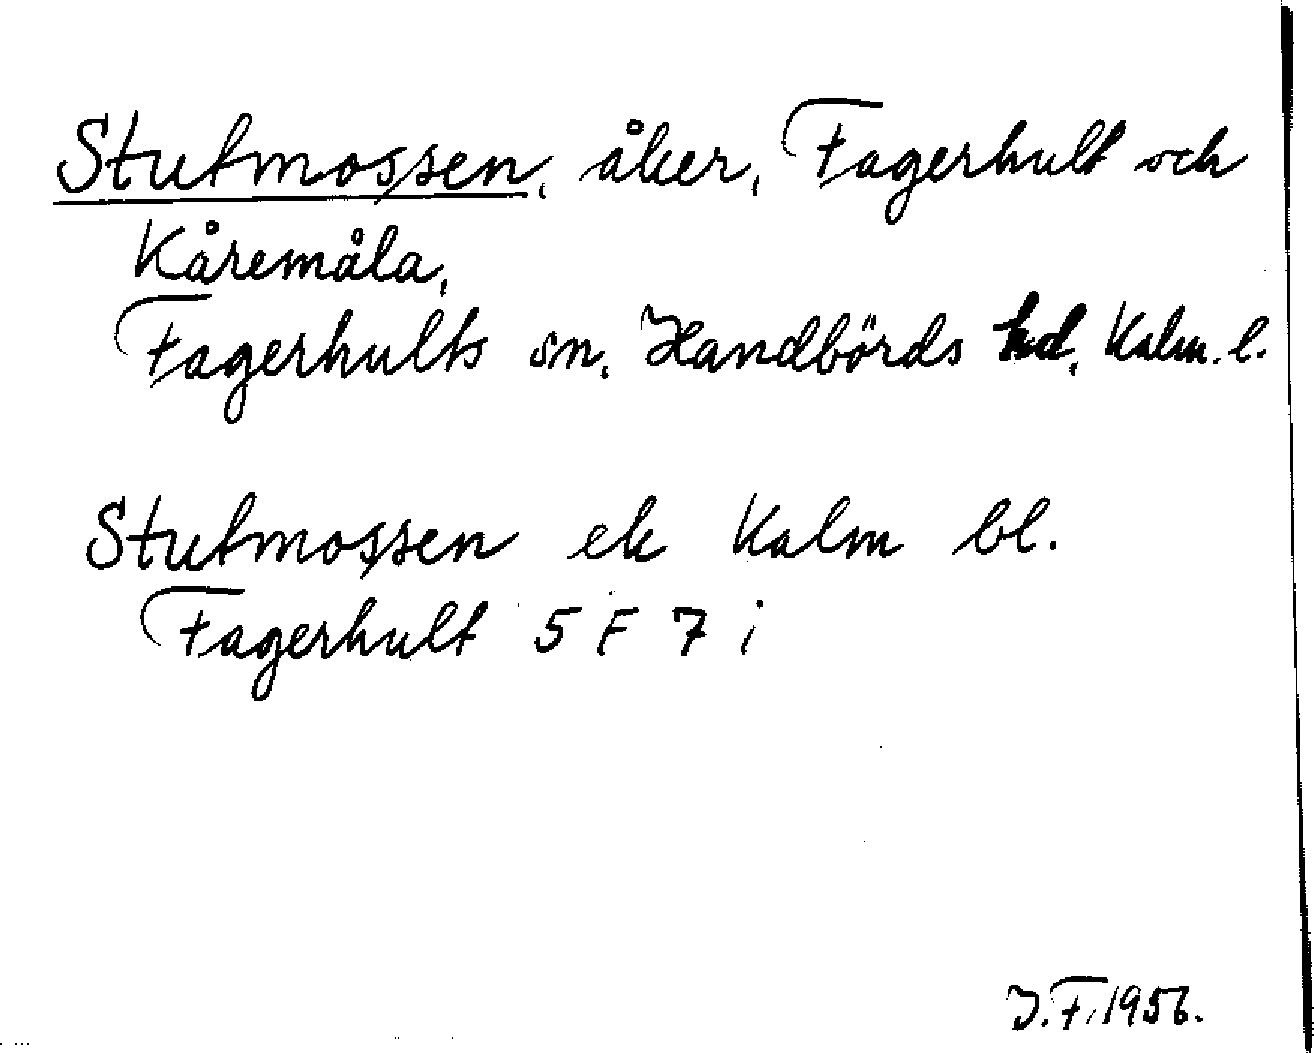 Stutmossen, åker, Fagerhult och
Kåremåla,
Fagerhults sn, Handbörds hd, Kalm. l.
Stutmossen ek Kalm bl.
Fagerhult 5 F 7 i
J.F. 1956.